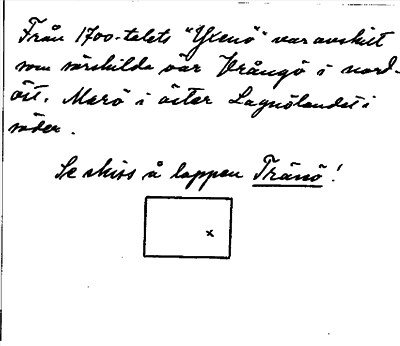 Från 1700-talets "Yxenö" var avskilt
som särskilda öar Vrångö i nord-
öst, Marö i öster Lagnölandet i
söder.
Se skiss å lappen Tränö!
x